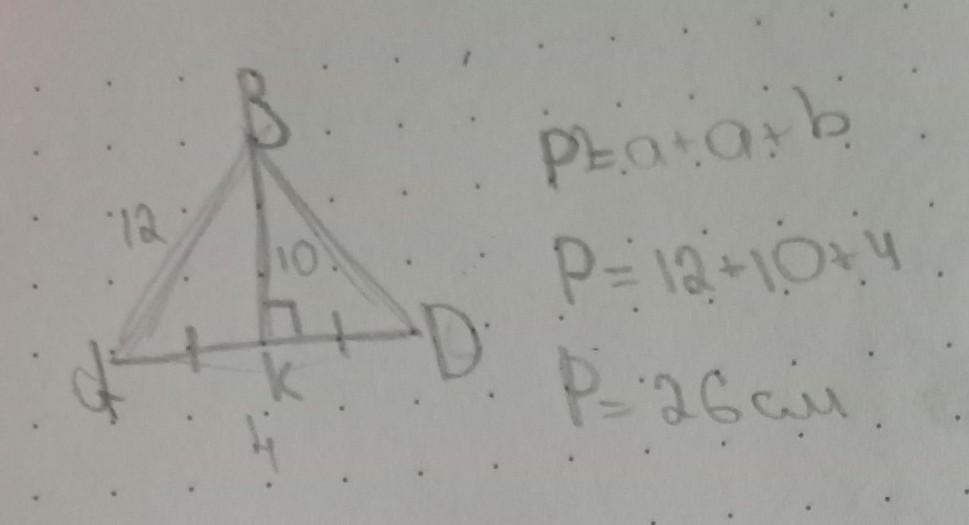 B
P=a+a+b
12
10
P=12+10+4
K
D
4
P=26см